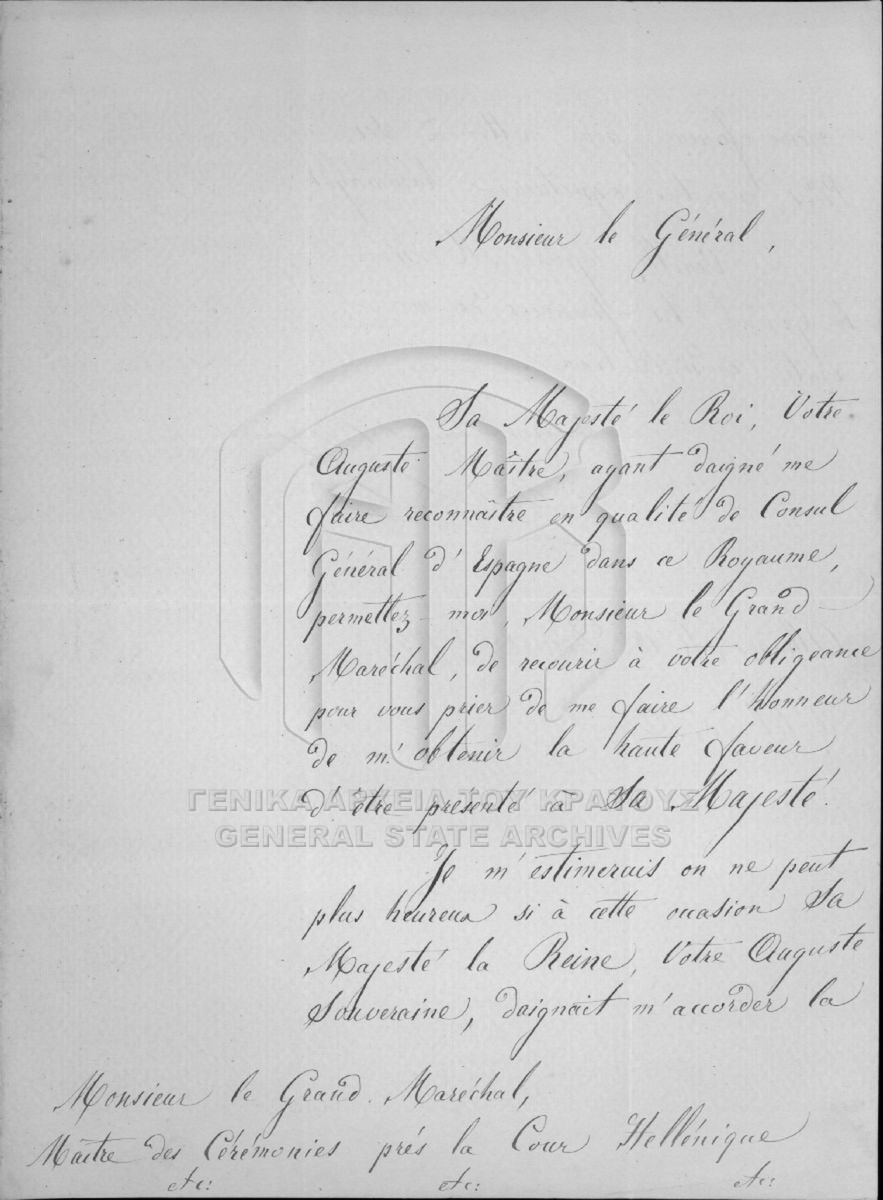 Monsieur le Général,
Sa Majesté le Roi, Votre
Auguste Maître, ayant daigné me
faire reconnaître en qualité de Consul
Général d'Espagne dans ce Royaume,
permettez-moi, Monsieur le Grand-
Maréchal, de recourir à votre obligeance
pour vous prier de me faire l'honneur
de m'obtenir la haute faveur
d'être présenté à Sa Majesté.
ΓΕΝΙΚΑ ΑΡΧΕΙΑ ΤΟΥ ΚΡΑΤΟΥΣ
GENERAL STATE ARCHIVES
Je m'estimerais on ne peut
plus heureux si à cette occasion Sa
Majesté la Reine, Votre Auguste
Souveraine, daignait m'accorder la
Monsieur le Grand Maréchal,
Maître des Cérémonies prés la Cour Hellénique
etc: etc: etc: